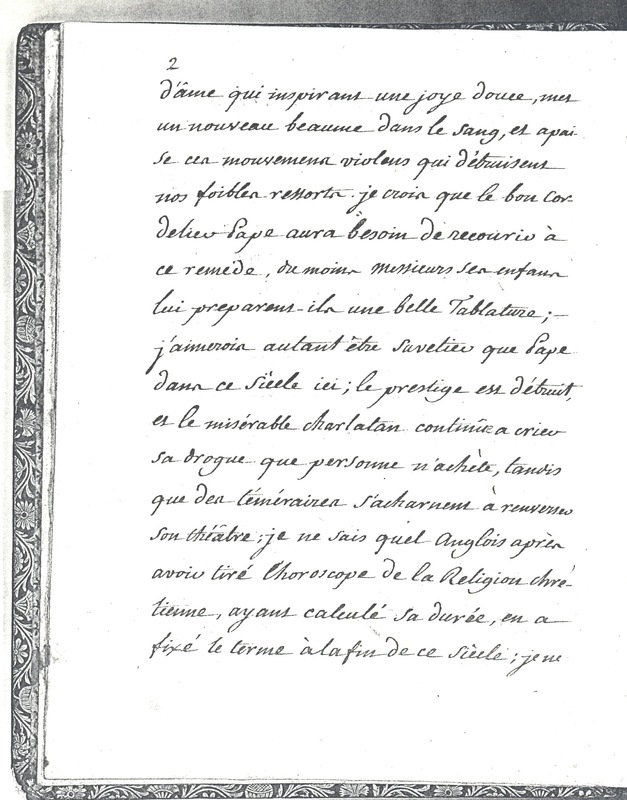 2
d'âme qui inspirant une joye douce, met
un nouveau beaume dans le sang, et apai-
se ces mouvemens violens qui détruisent
nos foibles ressorts. je crois que le bon Cor-
delier Pape aura besoin de recourir à
ce remède, du moins messieurs ses enfans
lui preparent-ils une belle Tablature; –
j'aimerois autant être savetier que Pape
dans ce siècle ici; le prestige est détruit,
et le misérable charlatan continüe a crier
sa drogue que personne n'achète, tandis
que des téméraires s'acharnent à renverser
son théâtre; je ne sais quel Anglois après
avoir tiré l'horoscope de la Religion chré-
tienne, ayant calculé sa durée, en a
fixé le terme à la fin de ce siècle; je ne